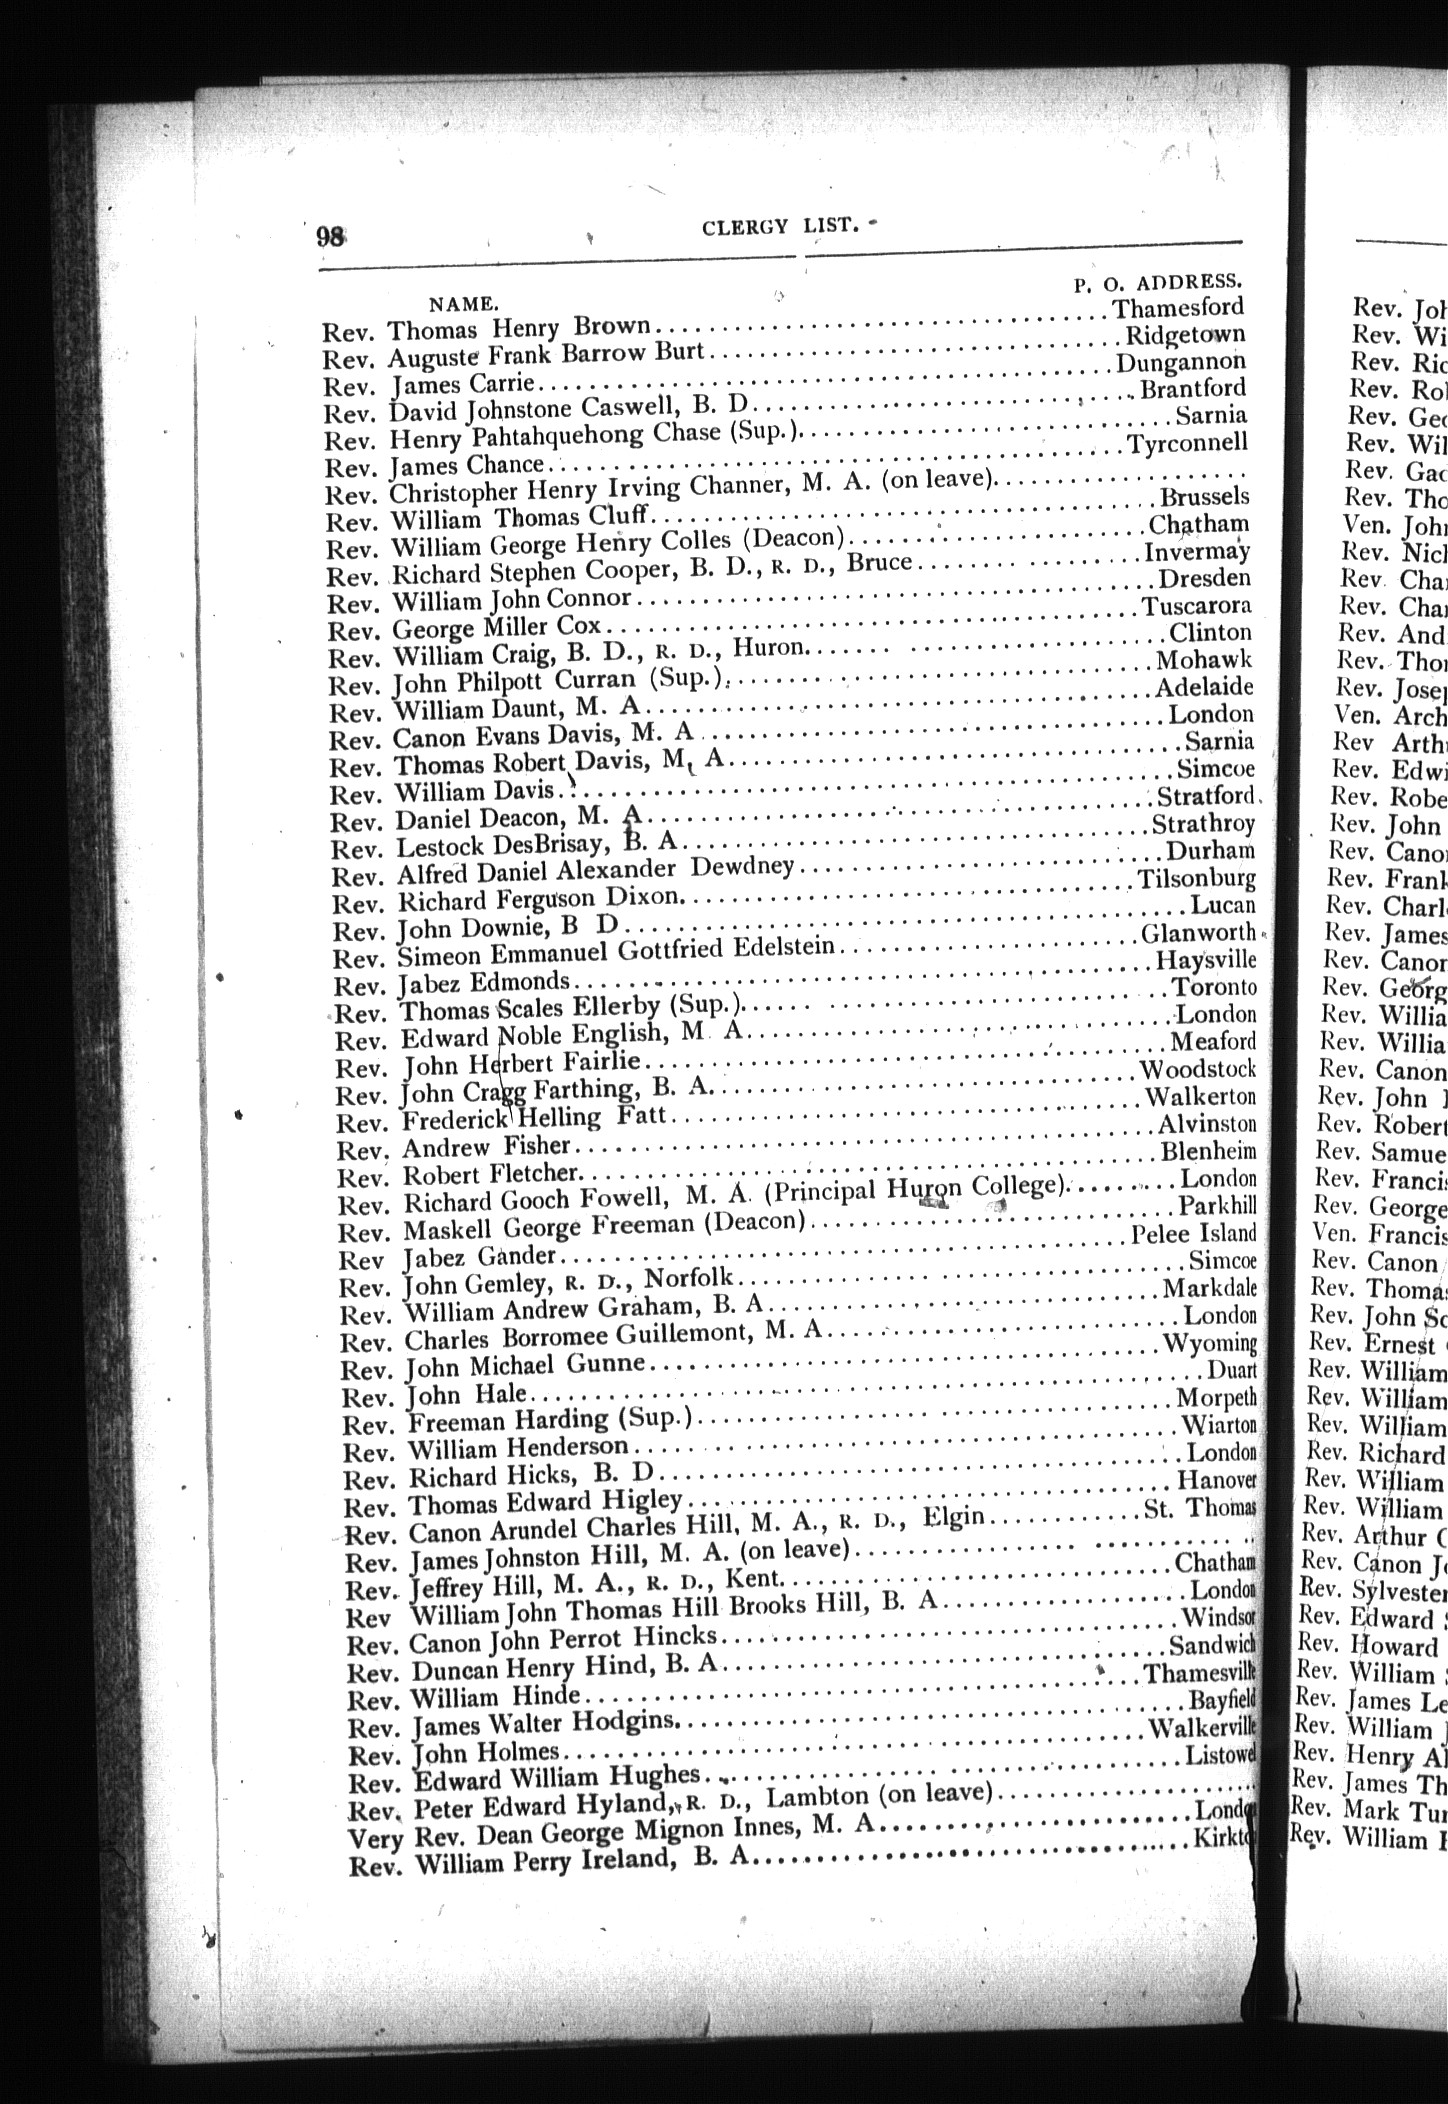 98 CLERGY LIST.
NAME. P. O. ADDRESS.
Rev. Thomas Henry Brown........Thamesford
Rev. Auguste Frank Barrow Burt........Ridgetown
Rev. James Carrie........Dungannon
Rev. David Johnstone Caswell, B. D........Brantford
Rev. Henry Pahtahquehong Chase (Sup.)........Sarnia
Rev. James Chance........Tyrconnell
Rev. Christopher Henry Irving Channer, M. A. (on leave)........
Rev. William Thomas Cluff........Brussels
Rev. William George Henry Colles (Deacon)........Chatham
Rev. Richard Stephen Cooper, B. D., R. D., Bruce........Invermay
Rev. William John Connor........Dresden
Rev. George Miller Cox........Tuscarora
Rev. William Craig, B. D., R. D., Huron........Clinton
Rev. John Philpott Curran (Sup.)........Mohawk
Rev. William Daunt, M. A........Adelaide
Rev. Canon Evans Davis, M. A........London
Rev. Thomas Robert Davis, M. A........Sarnia
Rev. William Davis........Simcoe
Rev. Daniel Deacon, M. A........Stratford
Rev. Lestock DesBrisay, B. A........Strathroy
Rev. Alfred Daniel Alexander Dewdney........Durham
Rev. Richard Ferguson Dixon........Tilsonburg
Rev. John Downie, B D........Lucan
Rev. Simeon Emmanuel Gottfried Edelstein........Glanworth
Rev. Jabez Edmonds........Haysville
Rev. Thomas Scales Ellerby (Sup.)........Toronto
Rev. Edward Noble English, M A........London
Rev. John Herbert Fairlie........Meaford
Rev. John Cragg Farthing, B. A........Woodstock
Rev. Frederick Helling Fatt........Walkerton
Rev. Andrew Fisher........Alvinston
Rev. Robert Fletcher........Blenheim
Rev. Richard Gooch Fowell, M. A. (Principal Huron College)........London
Rev. Maskell George Freeman (Deacon)........Parkhill
Rev Jabez Gander........Pelee Island
Rev. John Gemley, R. D., Norfolk........Simcoe
Rev. William Andrew Graham, B. A........Markdale
Rev. Charles Borromee Guillemont, M. A........London
Rev. John Michael Gunne........Wyoming
Rev. John Hale........Duart
Rev. Freeman Harding (Sup.)........Morpeth
Rev. William Henderson........Wiarton
Rev. Richard Hicks, B. D........London
Rev. Thomas Edward Higley........Hanover
Rev. Canon Arundel Charles Hill, M. A., R. D., Elgin........St. Thomas
Rev. James Johnston Hill, M. A. (on leave)........
Rev. Jeffrey Hill, M. A., R. D., Kent........Chatham
Rev William John Thomas Hill Brooks Hill, B. A........London
Rev. Canon John Perrot Hincks........Windsor
Rev. Duncan Henry Hind, B. A........Sandwich
Rev. William Hinde........Thamesville
Rev. James Walter Hodgins........Bayfield
Rev. John Holmes........Walkerville
Rev. Edward William Hughes........Listowel
Rev. Peter Edward Hyland, R. D., Lambton (on leave)........
Very Rev. Dean George Mignon Innes, M. A........Londo
Rev. William Perry Ireland, B. A........Kirkto
Rev. Joh
Rev. Wi
Rev. Ric
Rev. Rol
Rev. Geo
Rev. Wil
Rev. Gac
Rev. Tho
Ven. John
Rev. Nich
Rev. Char
Rev. Char
Rev. And
Rev. Thor
Rev. Josep
Ven. Arch
Rev Arthu
Rev. Edwi
Rev. Robe
Rev. John
Rev. Canon
Rev. Frank
Rev. Charl
Rev. James
Rev. Canon
Rev. Georg
Rev. Willia
Rev. Willia
Rev. Canon
Rev. John
Rev. Robert
Rev. Samue
Rev. Francis
Rev. George
Ven. Francis
Rev. Canon
Rev. Thomas
Rev. John Sc
Rev. Ernest
Rev. William
Rev. William
Rev. William
Rev. Richard
Rev. William
Rev. William
Rev. Arthur C
Rev. Canon Jo
Rev. Sylvester
Rev. Edward
Rev. Howard
Rev. William
Rev. James Le
Rev. William J
Rev. Henry Al
Rev. James Th
Rev. Mark Tur
Rev. William